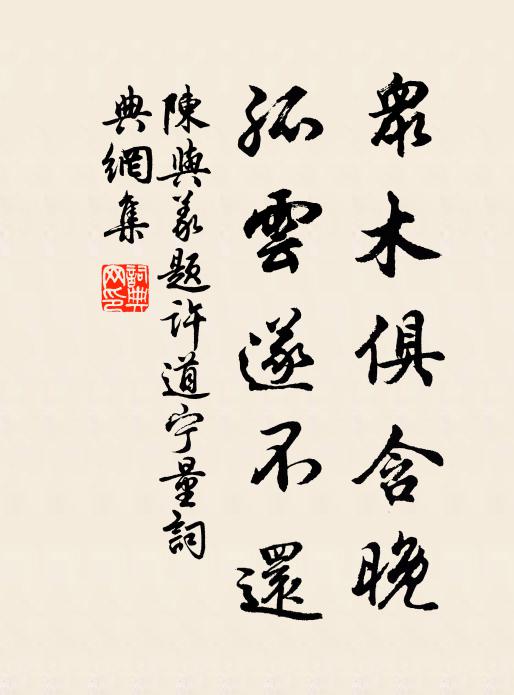 眾木俱含晚
孤雲遂不還
陳與義題許道宁量詞
典網集
詞典
网印